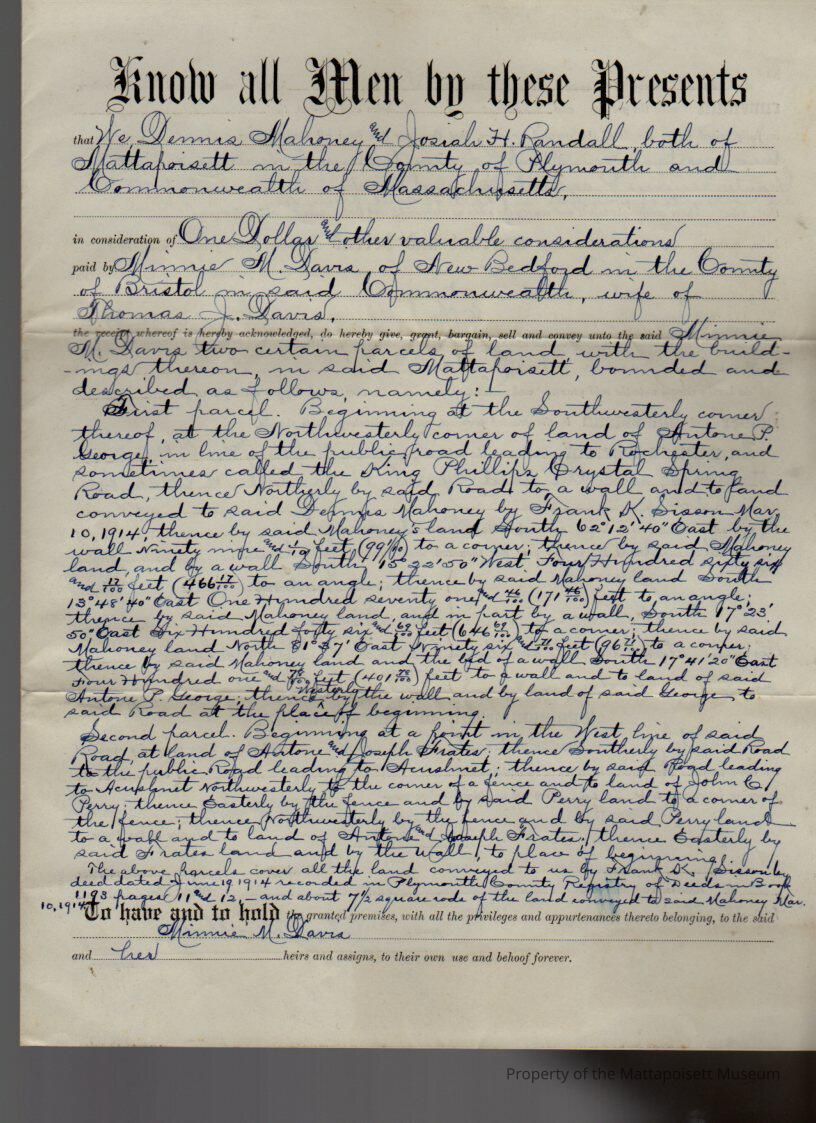 Know all Men by these Presents
that We Dennis Mahoney and Josiah H. Randall, both of
Mattapoisett in the County of Plymouth and
Commonwealth of Massachusetts,
in consideration of One Dollar and other valuable considerations
paid by Minnie M. Davis of New Bedford in the County
of Bristol in said Commonwealth, wife of
Thomas J. Davis,
the receipt whereof is hereby acknowledged, do hereby give, grant, bargain, sell and convey unto the said Minnie
M. Davis two certain parcels of land, with the build-
-ings thereon, in said Mattapoisett, bounded and
described as follows, namely:-
First parcel. Beginning at the Southwesterly corner
thereof, at the Northwesterly corner of land of Antone P.
George, in line of the public road leading to Rochester, and
sometimes called the King Phillips Crystal Spring
Road, thence Northerly by said Road to a wall and to land
conveyed to said Dennis Mahoney by Frank K. Sisson Mar.
10, 1914, thence by said Mahoney's land South 62°12'40" East by the
wall Ninety nine and feet to a corner; thence by said Mahoney
land, and by a wall South 15°22'50" West, Four Hundred sixty six
and 17/100 feet (466 17/100) to an angle; thence by said Mahoney land South
13°48'40" East One Hundred seventy one and 46/100 (171 46/100) feet to an angle;
thence by said Mahoney land, and in part by a wall, South 17°23'
50" East Six Hundred forty six and 68/100 feet (646 68/100) to a corner; thence by said
Mahoney land North 81°37' East Ninety six and feet to a corner;
thence by said Mahoney land and the bed of a wall South 17°41'20" East
Four Hundred one and feet to a wall and to land of said
Antone P. George; thence Westerly by the wall and by land of said George to
said Road at the place of beginning.
Second parcel. Beginning at a point in the West line of said
Road, at land of Antone and Joseph Frates; thence Southerly by said Road
to the public Road leading to Acushnet; thence by said Road leading
to Acushnet Northwesterly to the corner of a fence and to land of John C.
Perry; thence Easterly by the fence and by said Perry land to a corner of
the fence; thence Northwesterly by the fence and by said Perry land
to a wall and to land of Antone and Joseph Frates; thence Easterly by
said Frates land and by the wall, to place of beginning.
The above parcels cover all the land conveyed to us by Frank K. Sisson by
deed dated June 19 1914 recorded in Plymouth County Registry of Deeds in Book
1193 pages 11 and 12, and about 7½ square rods of the land conveyed to said Mahoney Mar.
10, 1914
To have and to hold the granted premises, with all the privileges and appurtenances thereto belonging, to the said
Minnie M. Davis
and her heirs and assigns, to their own use and behoof forever.
Property of the Mattapoisett Museum